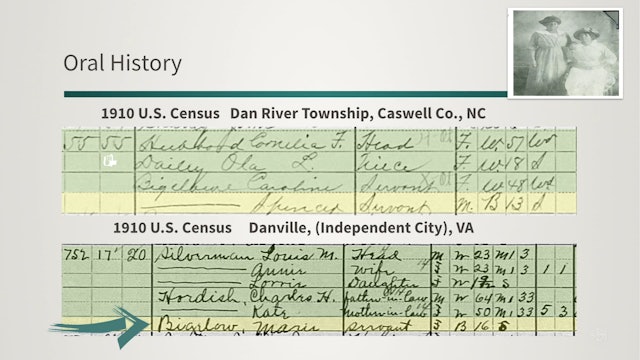 Oral History
1910 U.S. Census Dan River Township, Caswell Co., NC
55 55 Cornelia F. Head F. W 57 Wd
Dailey Ola L. Niece F. W 18 S
Caroline Servant F. W 48 Wd
Spencer Servant M. B 13 S
1910 U.S. Census Danville, (Independent City), VA
752 17 20 Silverman Louis M. Head M W 23 M1 3
Annie Wife F W 23 M1 3 1 1
Daughter F W S
Hordish, Charles H. father-in-law M W 64 M1 33
Kate mother-in-law F W 50 M1 33 5 3
Bigelow, servant F B 16 S